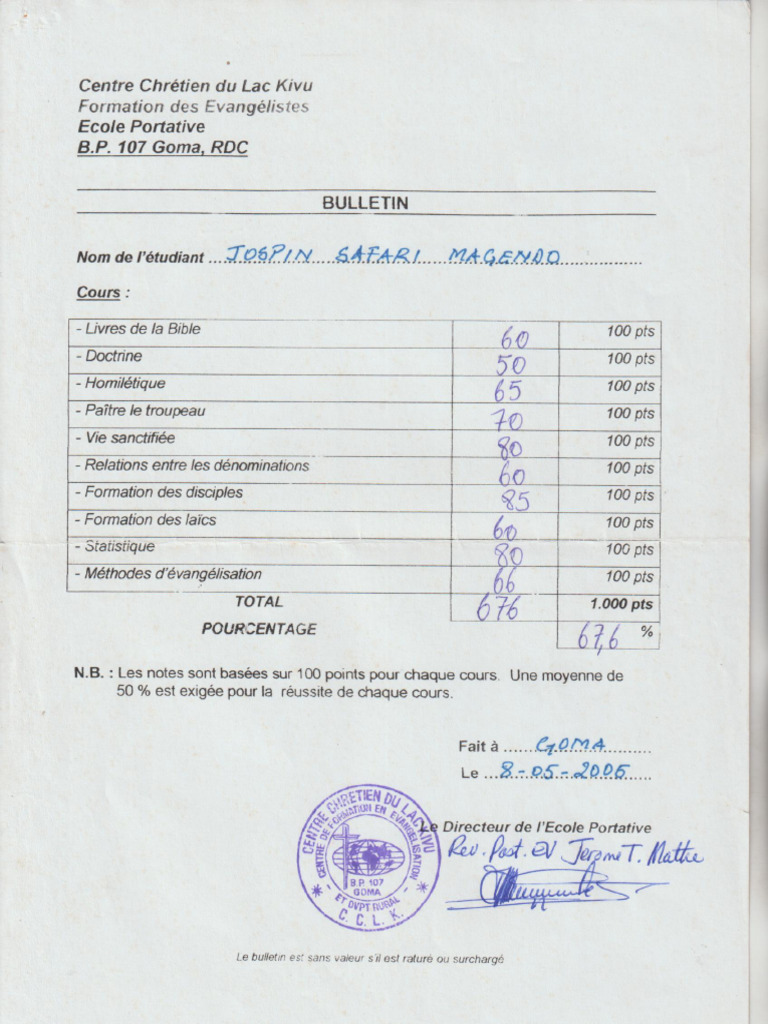 Centre Chrétien du Lac Kivu
Formation des Evangélistes
Ecole Portative
B.P. 107 Goma, RDC
BULLETIN
Nom de l'étudiant ... JOSPIN SAFARI MAGENDO
Cours :
- Livres de la Bible 60 100 pts
- Doctrine 50 100 pts
- Homilétique 65 100 pts
- Paître le troupeau 70 100 pts
- Vie sanctifiée 80 100 pts
- Relations entre les dénominations 60 100 pts
- Formation des disciples 85 100 pts
- Formation des laïcs 60 100 pts
- Statistique 80 100 pts
- Méthodes d'évangélisation 66 100 pts
TOTAL 676 1.000 pts
POURCENTAGE 67,6 %
N.B. : Les notes sont basées sur 100 points pour chaque cours. Une moyenne de
50 % est exigée pour la réussite de chaque cours.
Fait à ...... GOMA
Le ... 8-05-2005
CENTRE CHRETIEN DU LAC KIVU
CENTRE DE FORMATION EN EVANGELISATION
B.P. 107
GOMA
ET DVPT RURAL
C. C. L. K.
Le Directeur de l'Ecole Portative
Rev. Past. EV Jérôme T.
Le bulletin est sans valeur s'il est raturé ou surchargé